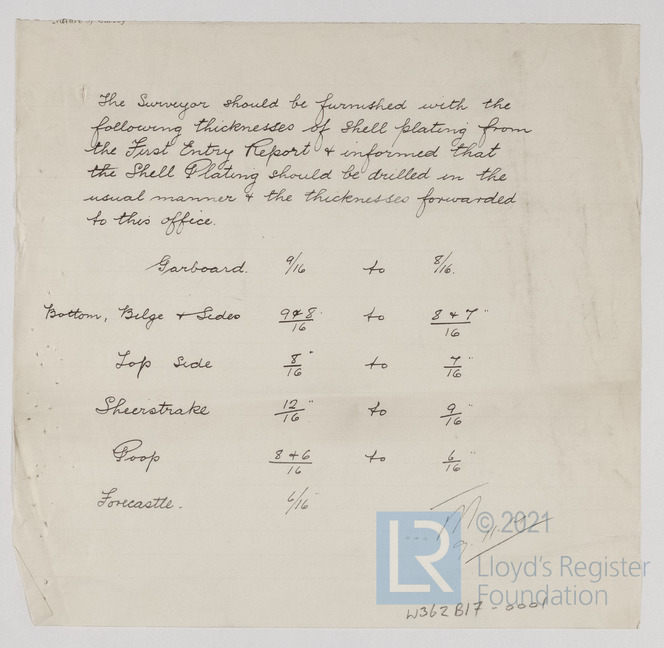 The Surveyor should be furnished with the
following thicknesses of Shell plating from
the First Entry Report & informed that
the Shell Plating should be drilled in the
usual manner & the thicknesses forwarded
to this office.
Garboard. 9/16 to 8/16.
Bottom, Bilge & Sides 9 & 8/16" to 8 & 7/16"
Top Side 8/16" to 7/16"
Sheerstrake 12/16" to 9/16"
Poop 8 & 6/16 to 6/16"
Forecastle. 6/16
© 2021
LR
Lloyd's Register
Foundation
W362 B17 - 0001